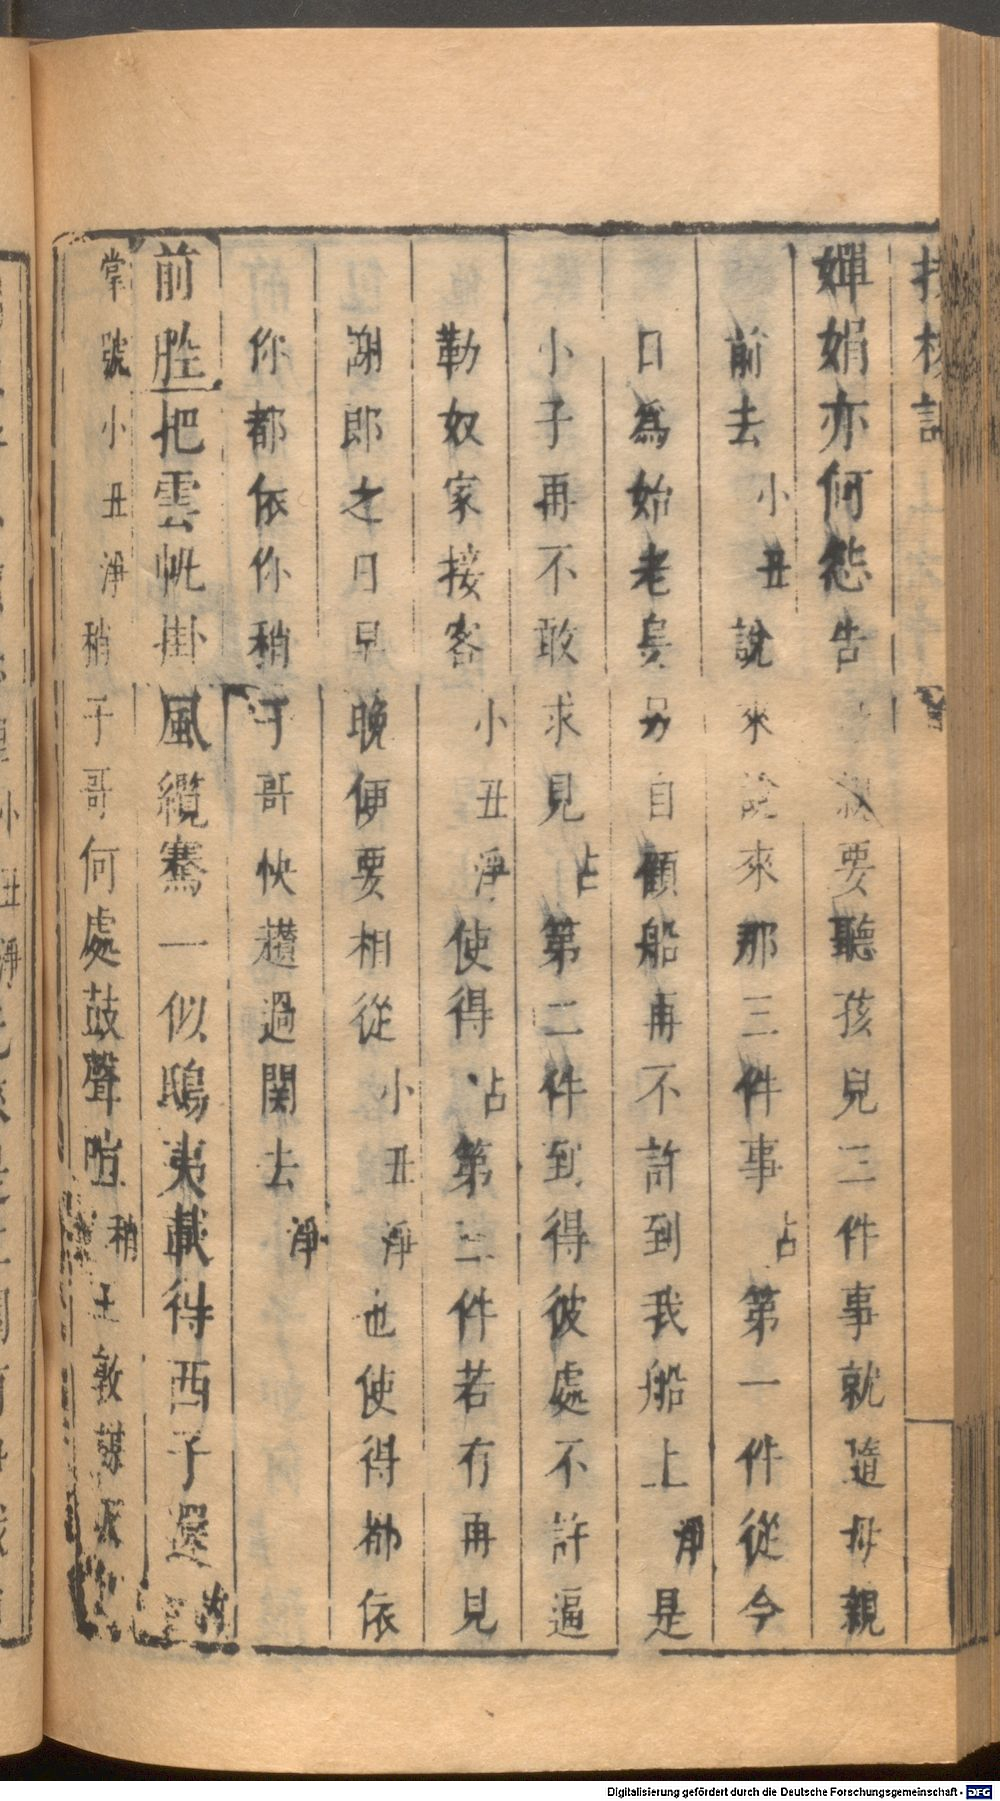 嬋娟亦何愁告親要聽孩兒三件事就隨母親
前去小丑說來說來那三件事占第一件從今
日為始老員另自顧船再不許到我船上淨是
小子再不敢求見占第二件到得彼處不許逼
勒奴家接客小丑淨使得占第三件若有再見
謝郎之日早晚便要相從小丑淨也使得都依
你都依你稍子哥快趲過関去淨
前腔把雲帆掛風纜騫一似鴟夷載得西子還
掌號小丑淨稍子哥何處鼓聲喧稍王敦謀
Digitalisierung gefördert durch die Deutsche Forschungsgemeinschaft - DFG